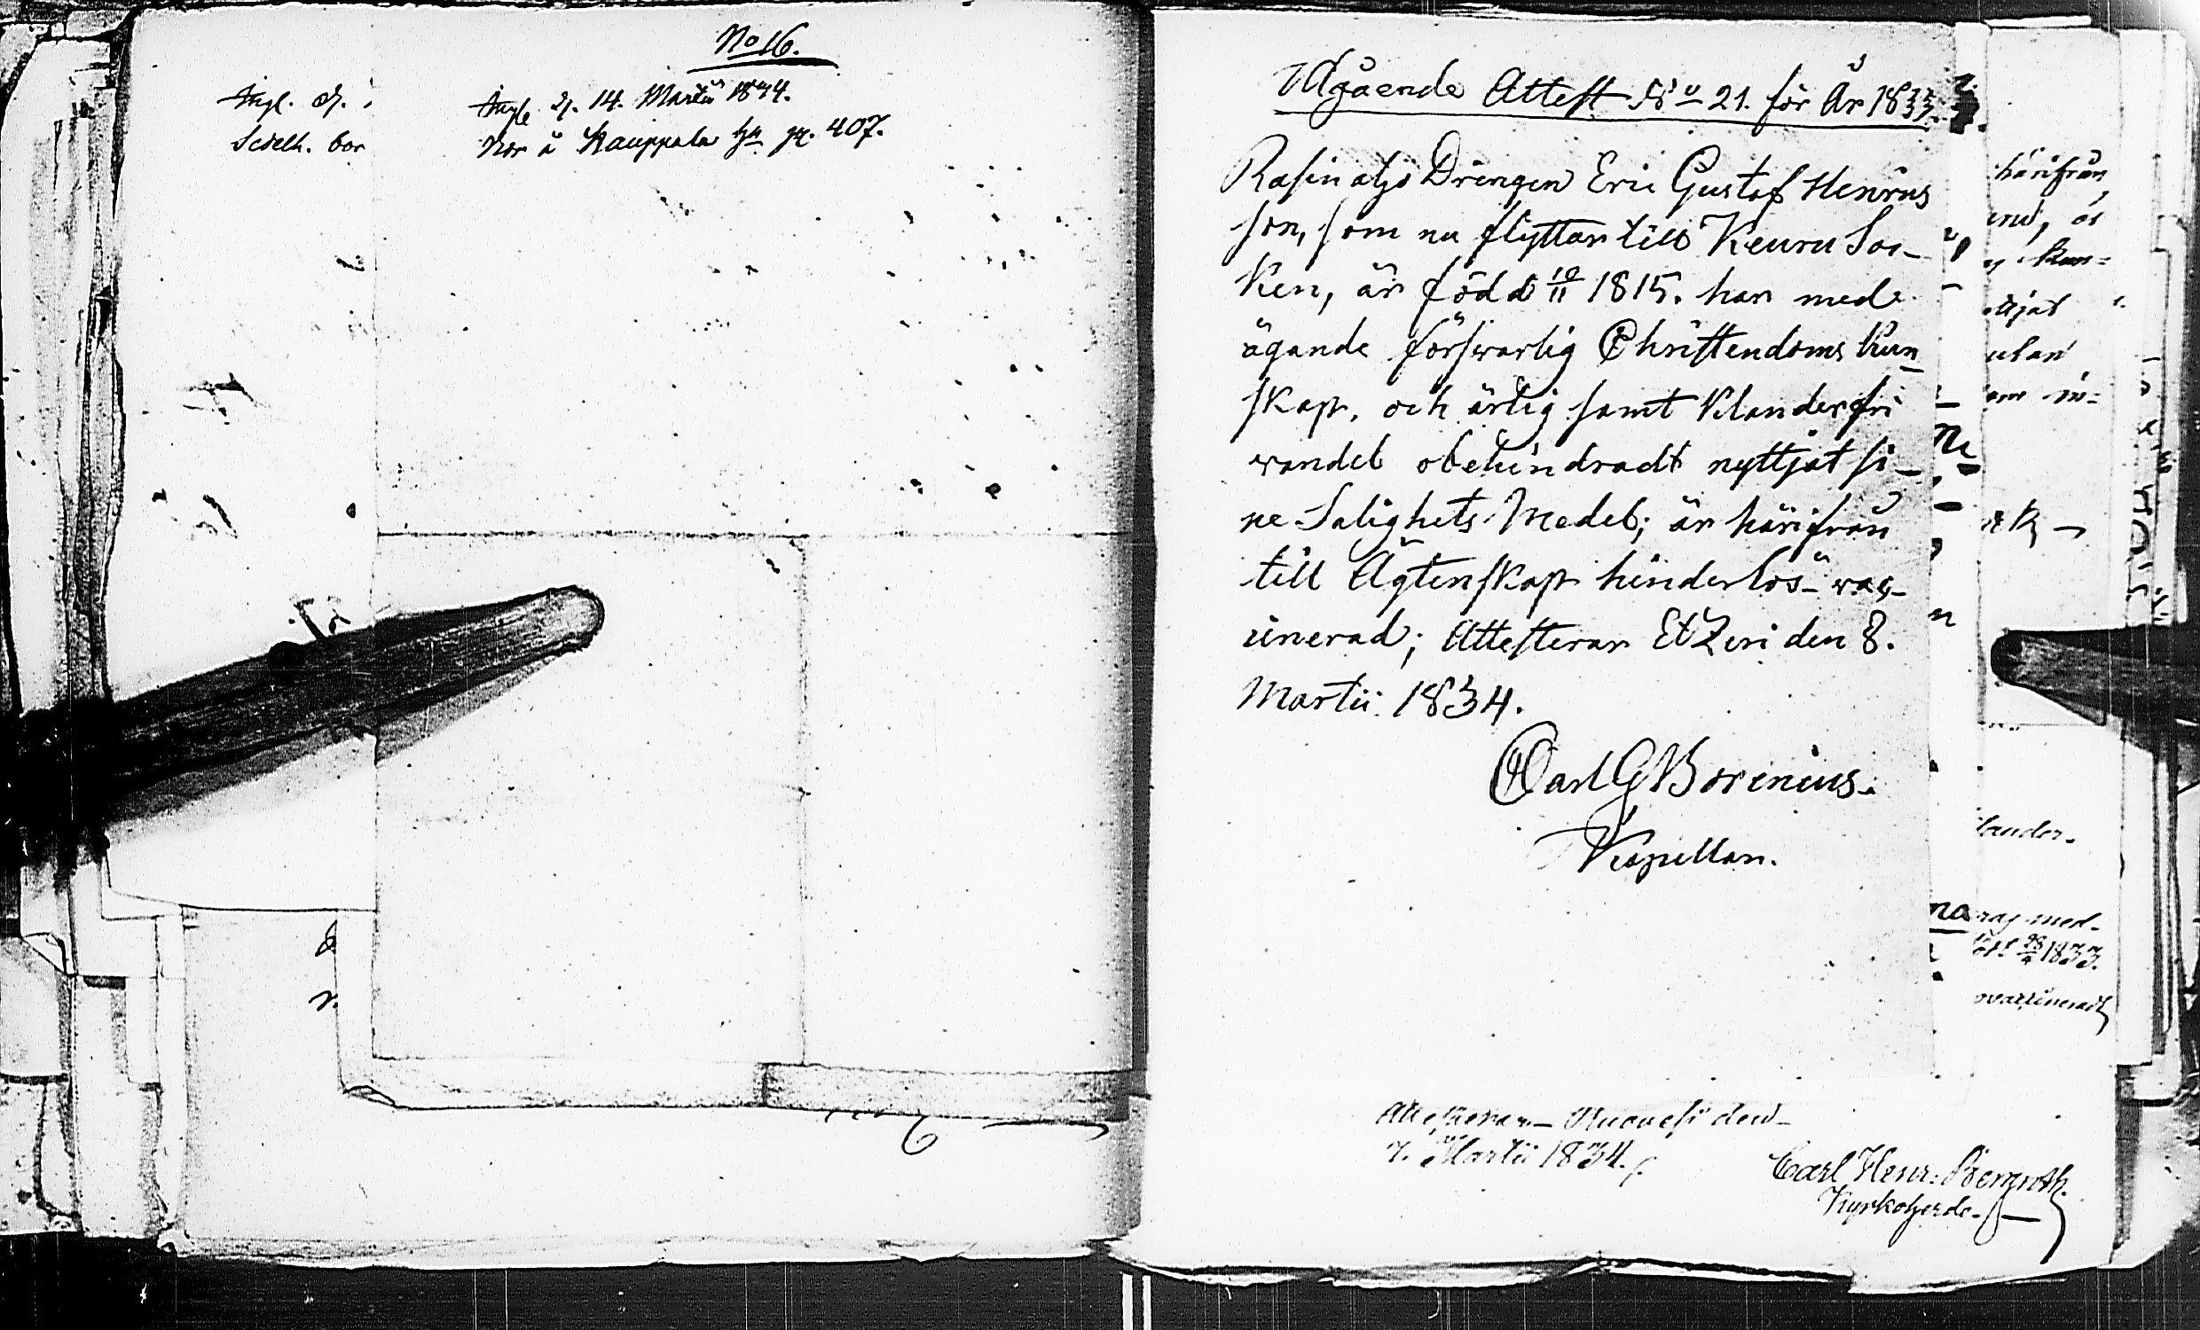 No 16.
Ingl. d.
Sedelh. bor
Ingl. d. 14. Martii 1834.
Bor å Kauppala hn p. 407.
Utgående Attest No 21. för År 1833.
Rasin aljo Drengen Eric Gustaf Henrics
son, som nu flyttar till Keuru Soc-
ken, är född 10/11 1815. har med
ägande förswarlig Christendoms Kun_
skap, och ärlig samt klanderfri
wandel obehindradt nyttjat si_
ne Salighets Medel; är härifrån
till Ägtenskap hinderlös_ wac_
inerad; Attesterar EtZeri den 8.
Martii 1834.
Carl G Borenius.
Kapellan.
Attesterar_ Ruovesi den_
7. Martii 1834.
Carl Henr: Bergroth.
Kyrkoherde.
härifrån
ttjat
lander.
med-
1833.
vaccineradt